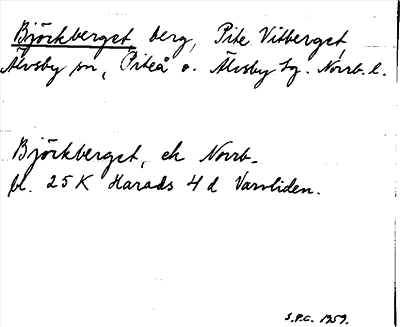 Björkberget, berg, Pite Vitberget,
Älvsby sn, Piteå o. Älvsby tg. Norrb. l.
Björkberget, ek Norrb.
bl. 25 K Harads 4 d Varvliden.
S.P.G. 1959.